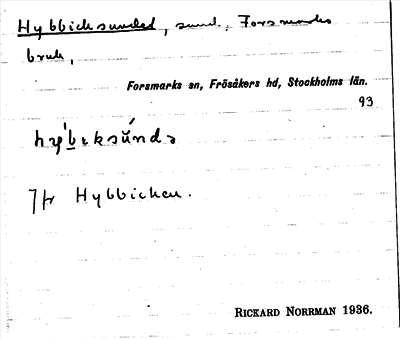 Hybbicksundet, sund, Forsmarks
bruk,
Forsmarks sn, Frösåkers hd, Stockholms län.
93
hy̍bɩksúndə
Jfr Hybbicken.
RICKARD NORRMAN 1936.